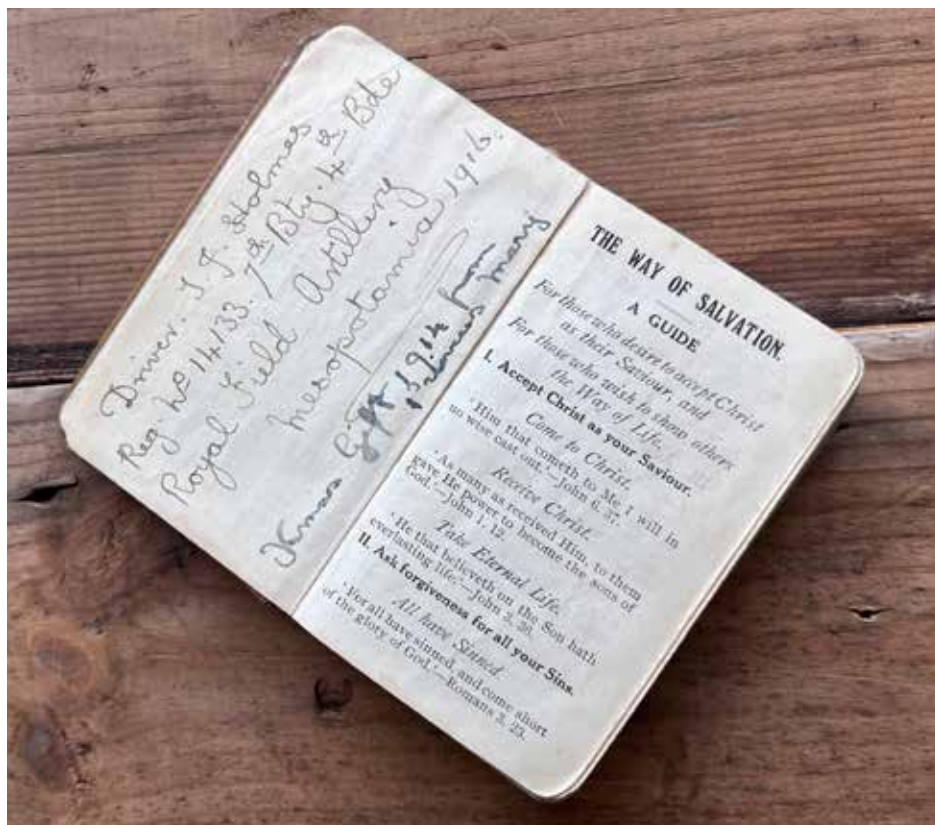 Driver. T. F. Holmes
Reg. No 14133. 7th Bty. 4th Bde
Royal Field Artillery
Mesopotamia, 1916.
Xmas Gift 1914
from
Princess Mary
THE WAY OF SALVATION.
A GUIDE
For those who desire to accept Christ
as their Saviour, and
For those who wish to show others
the Way of Life.
I. Accept Christ as your Saviour.
Come to Christ.
'Him that cometh to Me I will in
no wise cast out.'—John 6. 37.
Receive Christ.
'As many as received Him, to them
gave He power to become the sons of
God.'—John 1. 12.
Take Eternal Life.
'He that believeth on the Son hath
everlasting life.'—John 3. 36.
II. Ask forgiveness for all your Sins.
All have Sinned.
'For all have sinned, and come short
of the glory of God.'—Romans 3. 23.